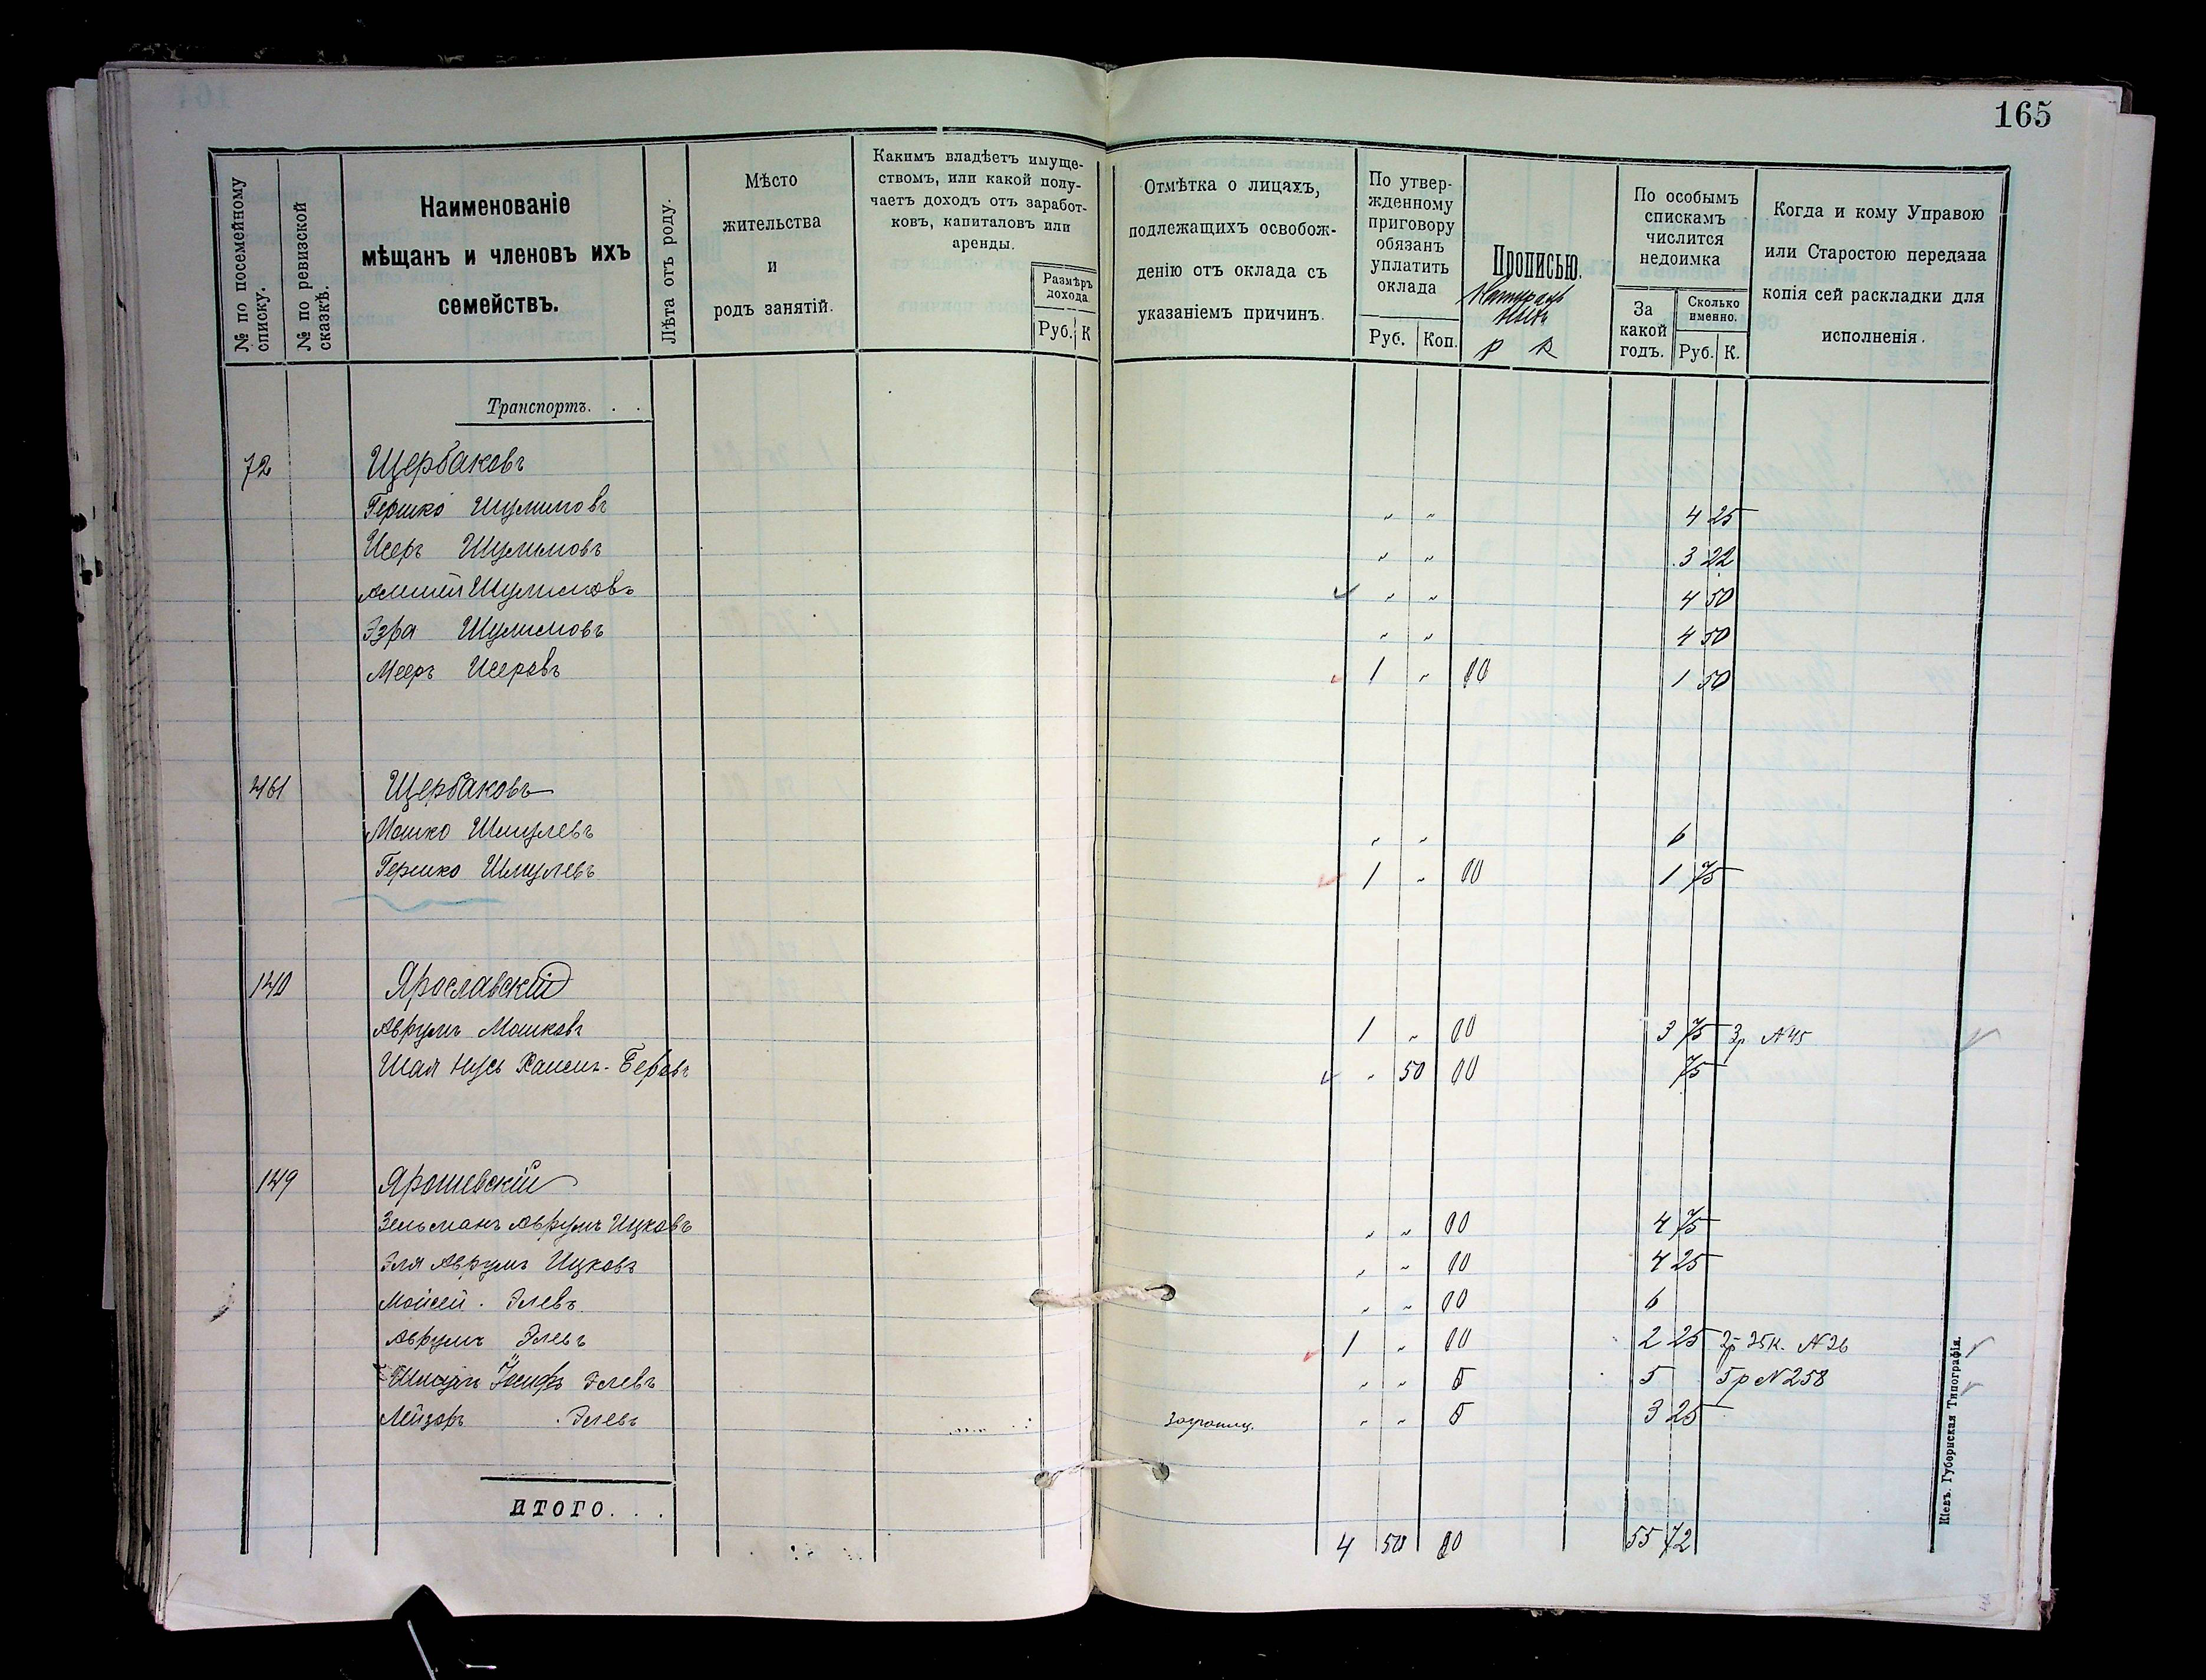 165
№ по посемейному списку.
№ по ревизской сказкѣ.
Наименованіе
мѣщанъ и членовъ ихъ
семействъ.
Лѣта отъ роду.
Мѣсто
жительства
и
родъ занятій.
Какимъ владѣетъ имуще-
ствомъ, или какой полу-
чаетъ доходъ отъ заработ-
ковъ, капиталовъ или
аренды.
Размѣръ
дохода.
Руб. К
Отмѣтка о лицахъ,
подлежащихъ освобож-
денію отъ оклада съ
указаніемъ причинъ.
По утвер-
жденному
приговору
обязанъ
уплатить
оклада
Руб. Коп.
Прописью.
Р К
По особымъ
спискамъ
числится
недоимка
За
какой
годъ.
Сколько
именно.
Руб. К.
Когда и кому Управою
или Старостою передана
копія сей раскладки для
исполненія.
Транспортъ. . .
72 Щербаковъ
Гершко Шулимовъ " " 4 25
Исеръ Шулимовъ " " 3 22
Шулимовъ " " 4 50
Эзра Шулимовъ " " 4 50
Мееръ Исеровъ 1 " 00 1 50
461 Щербаковъ
Мошко Шмулевъ " " 6
Гершко Шмулевъ 1 " 00 1 75
140 Ярославскій
Аврумъ Мошковъ 1 " 00 3 75 3р №45
Шая Нусъ Хаимъ-Беровъ " 50 00 75
149 Ярошевскій
Зельманъ Аврумъ Ицковъ " " 00 4 75
Эля Аврумъ Ицковъ " " 00 4 25
Мойсей Элевъ " " 00 6
Аврумъ Элевъ 1 " 00 2 25 2р 25к. №26
Іосифъ Элевъ " " 5 5 5р №258
Лейзоръ Элевъ заграниц. " " 5 3 25
ИТОГО. . .
4 50 00 55 72
Кіевъ. Губернская Типографія.